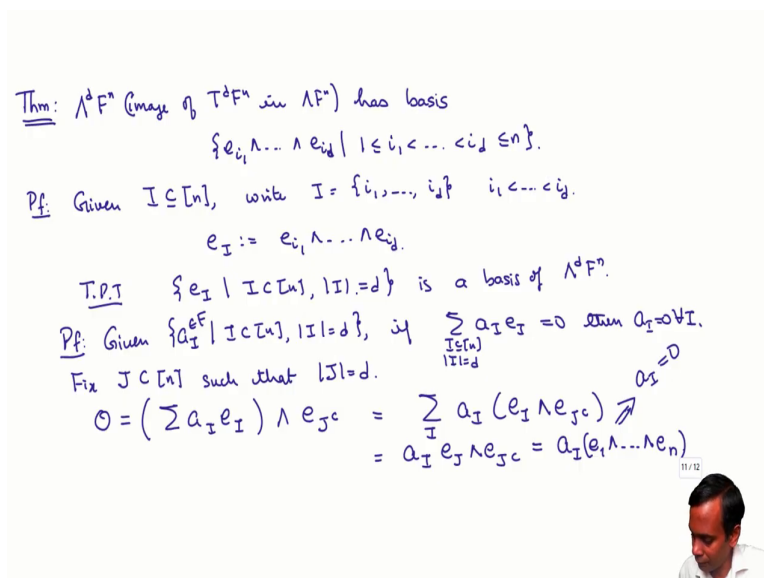 Thm: Λ^d F^n (image of T^d F^n in ΛF^n) has basis
{e_{i_1} ∧ ... ∧ e_{i_d} | 1 ≤ i_1 < ... < i_d ≤ n}.
Pf: Given I ⊆ [n], write I = {i_1, ..., i_d} i_1 < ... < i_d.
e_I := e_{i_1} ∧ ... ∧ e_{i_d}.
T.P.T {e_I | I ⊂ [n], |I| = d} is a basis of Λ^d F^n.
Pf: Given {a_I ∈ F | I ⊂ [n], |I| = d}, if ∑_{I ⊆ [n], |I| = d} a_I e_I = 0 then a_I = 0 ∀ I.
Fix J ⊂ [n] such that |J| = d.
0 = (∑ a_I e_I) ∧ e_{J^c} = ∑_I a_I (e_I ∧ e_{J^c}) ⇒ a_I = 0
= a_I e_J ∧ e_{J^c} = a_I (e_1 ∧ ... ∧ e_n)
11 / 12